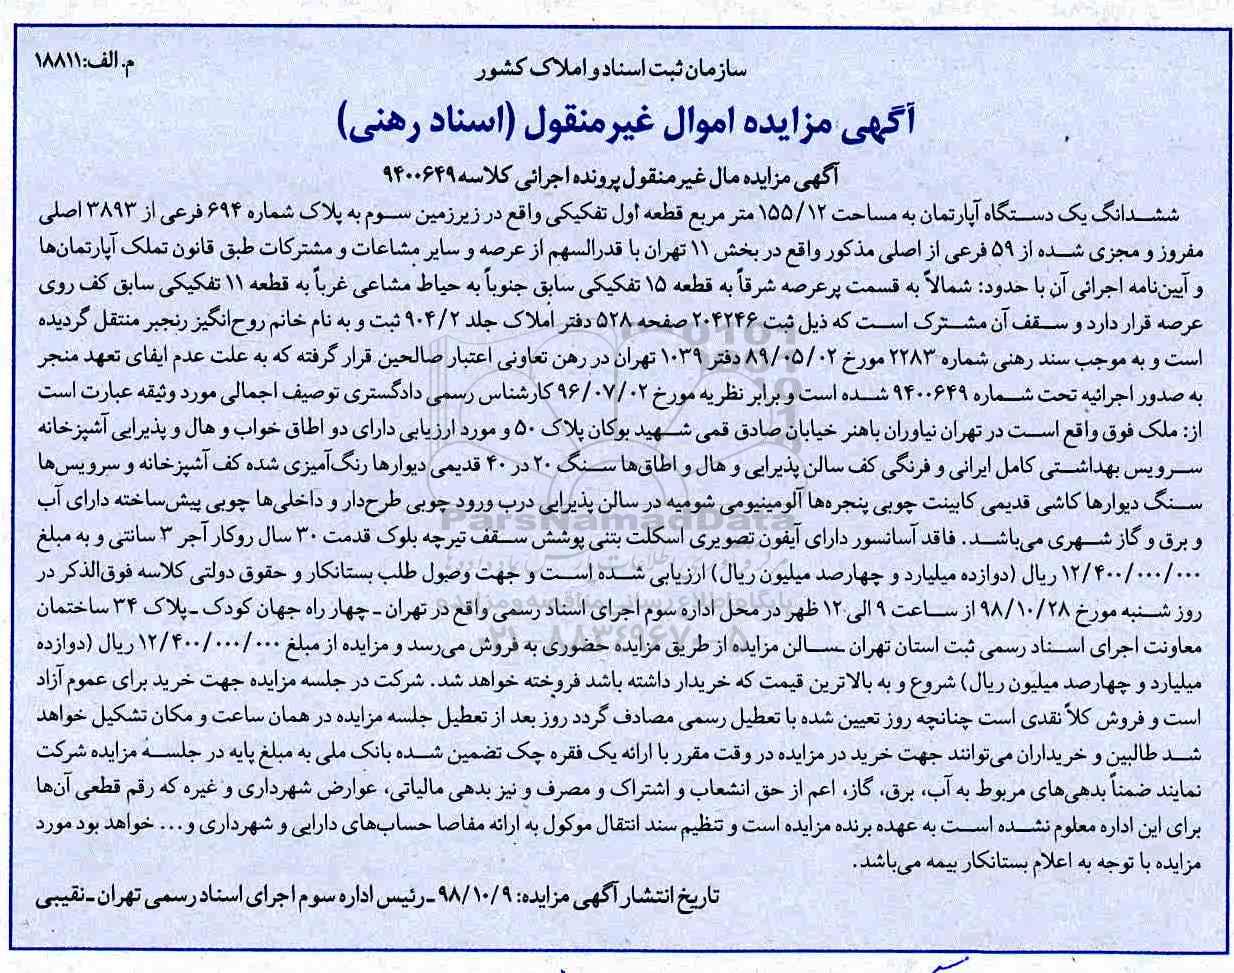 م.الف:۱۸۸۱۱
سازمان ثبت اسناد و املاک کشور
آگهی مزایده اموال غیرمنقول (اسناد رهنی)
آگهی مزایده مال غیرمنقول پرونده اجرائی کلاسه ۹۴۰۰۶۴۹
ششدانگ یک دستگاه آپارتمان به مساحت ۱۵۵/۱۲ متر مربع قطعه اول تفکیکی واقع در زیرزمین سوم به پلاک شماره ۶۹۴ فرعی از ۳۸۹۳ اصلی
مفروز و مجزی شده از ۵۹ فرعی از اصلی مذکور واقع در بخش ۱۱ تهران با قدرالسهم از عرصه و سایر مشاعات و مشترکات طبق قانون تملک آپارتمان‌ها
و آیین‌نامه اجرائی آن با حدود: شمالاً به قسمت پرعرصه شرقاً به قطعه ۱۵ تفکیکی سابق جنوباً به حیاط مشاعی غرباً به قطعه ۱۱ تفکیکی سابق کف روی
عرصه قرار دارد و سقف آن مشترک است که ذیل ثبت ۲۰۴۲۴۶ صفحه ۵۲۸ دفتر املاک جلد ۹۰۴/۲ ثبت و به نام خانم روح‌انگیز رنجبر منتقل گردیده
است و به موجب سند رهنی شماره ۲۲۸۳ مورخ ۸۹/۰۵/۰۲ دفتر ۱۰۳۹ تهران در رهن تعاونی اعتبار صالحین قرار گرفته که به علت عدم ایفای تعهد منجر
به صدور اجرائیه تحت شماره ۹۴۰۰۶۴۹ شده است و برابر نظریه مورخ ۹۶/۰۷/۰۲ کارشناس رسمی دادگستری توصیف اجمالی مورد وثیقه عبارت است
از: ملک فوق واقع است در تهران نیاوران باهنر خیابان صادق قمی شهید بوکان پلاک ۵۰ و مورد ارزیابی دارای دو اطاق خواب و هال و پذیرایی آشپزخانه
سرویس بهداشتی کامل ایرانی و فرنگی کف سالن پذیرایی و هال و اطاق‌ها سنگ ۲۰ در ۴۰ قدیمی دیوارها رنگ‌آمیزی شده کف آشپزخانه و سرویس‌ها
سنگ دیوارها کاشی قدیمی کابینت چوبی پنجره‌ها آلومینیومی شومیه در سالن پذیرایی درب ورود چوبی طرح‌دار و داخلی‌ها چوبی پیش‌ساخته دارای آب
و برق و گاز شهری می‌باشد. فاقد آسانسور دارای آیفون تصویری اسکلت بتنی پوشش سقف تیرچه بلوک قدمت ۳۰ سال روکار آجر ۳ سانتی و به مبلغ
۱۲/۴۰۰/۰۰۰/۰۰۰ ریال (دوازده میلیارد و چهارصد میلیون ریال) ارزیابی شده است و جهت وصول طلب بستانکار و حقوق دولتی کلاسه فوق‌الذکر در
روز شنبه مورخ ۹۸/۱۰/۲۸ از ساعت ۹ الی ۱۲ ظهر در محل اداره سوم اجرای اسناد رسمی واقع در تهران ـ چهار راه جهان کودک ـ پلاک ۳۴ ساختمان
معاونت اجرای اسناد رسمی ثبت استان تهران ـ سالن مزایده از طریق مزایده حضوری به فروش می‌رسد و مزایده از مبلغ ۱۲/۴۰۰/۰۰۰/۰۰۰ ریال (دوازده
میلیارد و چهارصد میلیون ریال) شروع و به بالاترین قیمت که خریدار داشته باشد فروخته خواهد شد. شرکت در جلسه مزایده جهت خرید برای عموم آزاد
است و فروش کلاً نقدی است چنانچه روز تعیین شده با تعطیل رسمی مصادف گردد روز بعد از تعطیل جلسه مزایده در همان ساعت و مکان تشکیل خواهد
شد طالبین و خریداران می‌توانند جهت خرید در مزایده در وقت مقرر با ارائه یک فقره چک تضمین شده بانک ملی به مبلغ پایه در جلسهٔ مزایده شرکت
نمایند ضمناً بدهی‌های مربوط به آب، برق، گاز، اعم از حق انشعاب و اشتراک و مصرف و نیز بدهی مالیاتی، عوارض شهرداری و غیره که رقم قطعی آن‌ها
برای این اداره معلوم نشده است به عهده برنده مزایده است و تنظیم سند انتقال موکول به ارائه مفاصا حساب‌های دارایی و شهرداری و... خواهد بود مورد
مزایده با توجه به اعلام بستانکار بیمه می‌باشد.
تاریخ انتشار آگهی مزایده: ۹۸/۱۰/۹ ـ رئیس اداره سوم اجرای اسناد رسمی تهران ـ نقیبی
ParsNamadData
۰۲۱-۸۸۳۴۹۶۷۰-۵